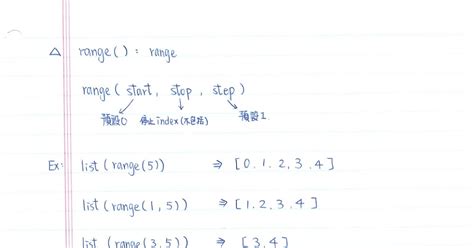 △ range() : range
range( start, stop, step )
預設0 停止index(不包括) 預設1
Ex: list(range(5)) ⇒ [0.1.2,3.4]
list (range(1,5)) ⇒ [1.2.3.4]
list (range(3,5)) ⇒ [3,4]